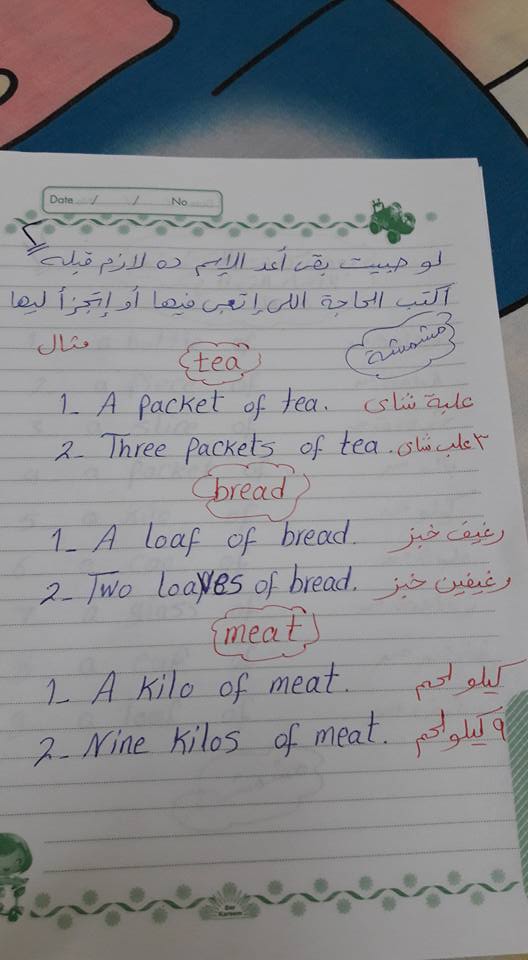 Date / / No
لو حبيت بقى أعد الإسم ده لازم قبله
أكتب الحاجة اللى إتعبى فيها أو إتجزأ ليها
مثال
مشمشة
tea
1- A packet of tea. علبة شاى
2- Three packets of tea. ٣ علب شاى
bread
1- A loaf of bread. رغيف خبز
2- Two loaves of bread. رغيفين خبز
meat
1- A kilo of meat. كيلو لحم
2- Nine kilos of meat. ٩ كيلو لحم